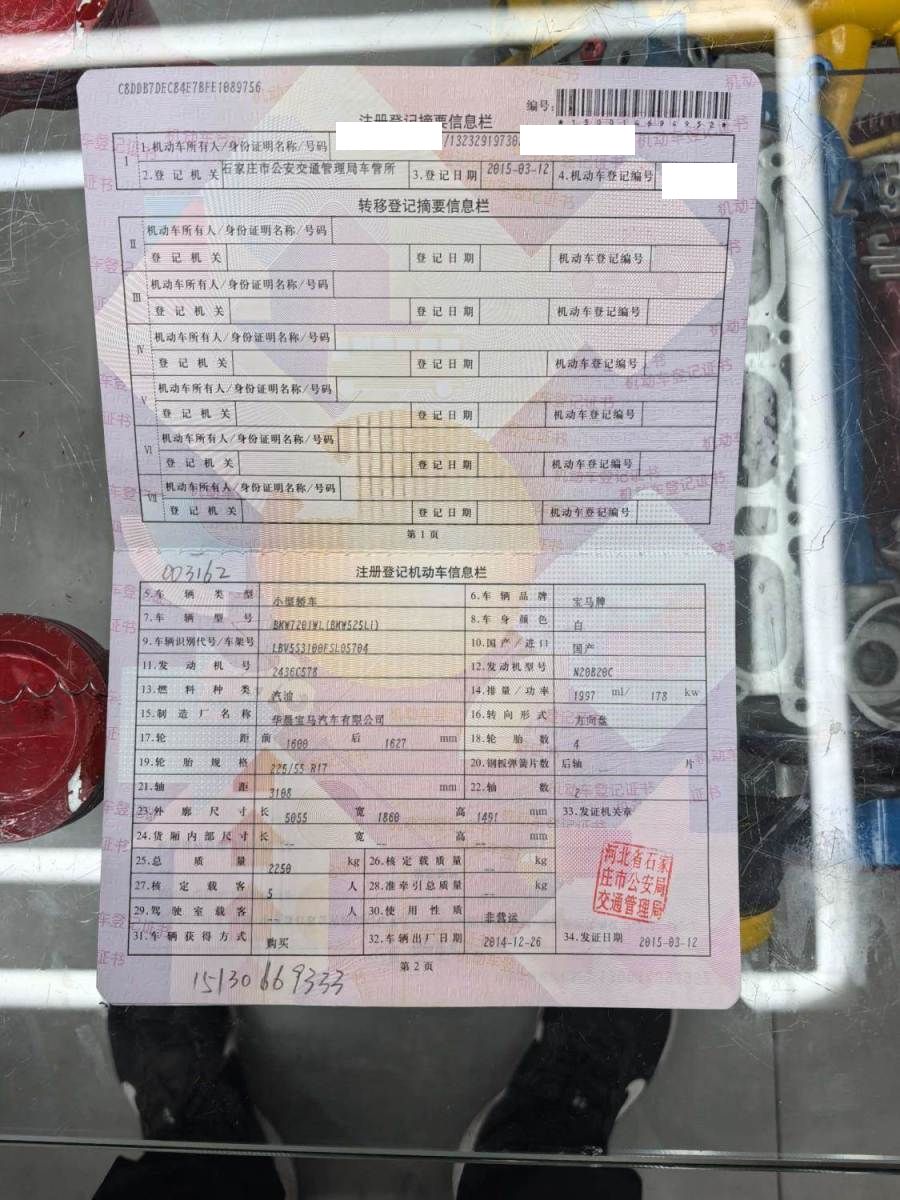 C8DDB7DEC84E7BFE1089756
编号:
注册登记摘要信息栏
I 1.机动车所有人/身份证明名称/号码 /13232919730
2.登记机关 石家庄市公安交通管理局车管所 3.登记日期 2015-03-12 4.机动车登记编号
转移登记摘要信息栏
II 机动车所有人/身份证明名称/号码
登记机关 登记日期 机动车登记编号
III 机动车所有人/身份证明名称/号码
登记机关 登记日期 机动车登记编号
IV 机动车所有人/身份证明名称/号码
登记机关 登记日期 机动车登记编号
V 机动车所有人/身份证明名称/号码
登记机关 登记日期 机动车登记编号
VI 机动车所有人/身份证明名称/号码
登记机关 登记日期 机动车登记编号
VII 机动车所有人/身份证明名称/号码
登记机关 登记日期 机动车登记编号
第1页
003162
注册登记机动车信息栏
5.车辆类型 小型轿车 6.车辆品牌 宝马牌
7.车辆型号 BMW7201WL(BMW525Li) 8.车身颜色 白
9.车辆识别代号/车架号 LBV5S3100FSL05704 10.国产/进口 国产
11.发动机号 2436C578 12.发动机型号 N20B20C
13.燃料种类 汽油 14.排量/功率 1997 ml/ 178 kw
15.制造厂名称 华晨宝马汽车有限公司 16.转向形式 方向盘
17.轮距 前 1600 后 1627 mm 18.轮胎数 4
19.轮胎规格 225/55 R17 20.钢板弹簧片数 后轴 片
21.轴距 3108 mm 22.轴数 2
23.外廓尺寸 长 5055 宽 1860 高 1491 mm 33.发证机关章
24.货厢内部尺寸 长 -- 宽 -- 高 -- mm
25.总质量 2250 kg 26.核定载质量 -- kg
27.核定载客 5 人 28.准牵引总质量 -- kg
29.驾驶室载客 -- 人 30.使用性质 非营运
河北省石家
庄市公安局
交通管理局
31.车辆获得方式 购买 32.车辆出厂日期 2014-12-26 34.发证日期 2015-03-12
第2页
15130669333